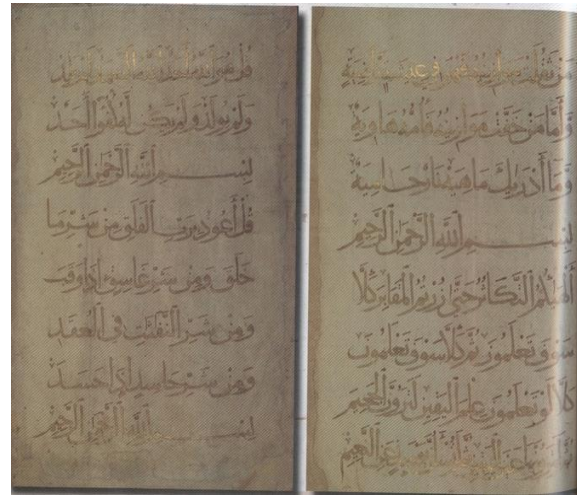 مَن ثَقُلَت مَوَازِينُهُ فَهُوَ فِي عِيشَةٍ رَاضِيَةٍ
وَأَمَّا مَنْ خَفَّت مَوَازِينُهُ فَأُمُّهُ هَاوِيَةٌ
وَمَا أَدْرَيكَ مَا هِيَهْ نَارٌ حَامِيَةٌ
بِسْمِ اللهِ الرَّحْمٰنِ الرَّحِيمِ
أَلْهَيكُمُ التَّكَاثُرُ حَتَّى زُرْتُمُ الْمَقَابِرَ كَلَّا
سَوْفَ تَعْلَمُونَ ثُمَّ كَلَّا سَوْفَ تَعْلَمُونَ
كَلَّا لَوْ تَعْلَمُونَ عِلْمَ الْيَقِينِ لَتَرَوُنَّ الْجَحِيمَ
عَيْنَ الْيَقِينِ ثُمَّ عَنِ النَّعِيمِ
قُلْ هُوَ اللهُ أَحَدٌ اللهُ الصَّمَدُ لَمْ يَلِدْ
وَلَمْ يُولَدْ وَلَمْ يَكُن لَهُ كُفُوًا أَحَدٌ
بِسْمِ اللهِ الرَّحْمٰنِ الرَّحِيمِ
قُلْ أَعُوذُ بِرَبِّ الْفَلَقِ مِن شَرِّ مَا
خَلَقَ وَمِن شَرِّ غَاسِقٍ إِذَا وَقَبَ
وَمِن شَرِّ النَّفَّثَتِ فِي الْعُقَدِ
وَمِن شَرِّ حَاسِدٍ إِذَا حَسَدَ
بِسْمِ اللهِ الرَّحْمٰنِ الرَّحِيمِ